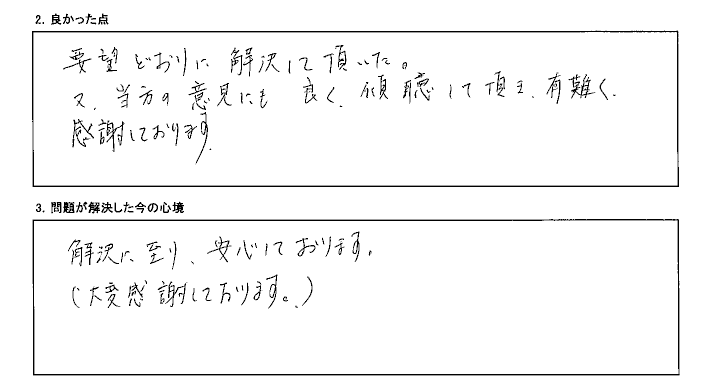 2. 良かった点
要望どおりに解決して頂いた。
又、当方の意見にも良く、傾聴して頂き、有難く、
感謝しております。
3. 問題が解決した今の心境
解決に至り、安心しております。
(大変感謝しております。)